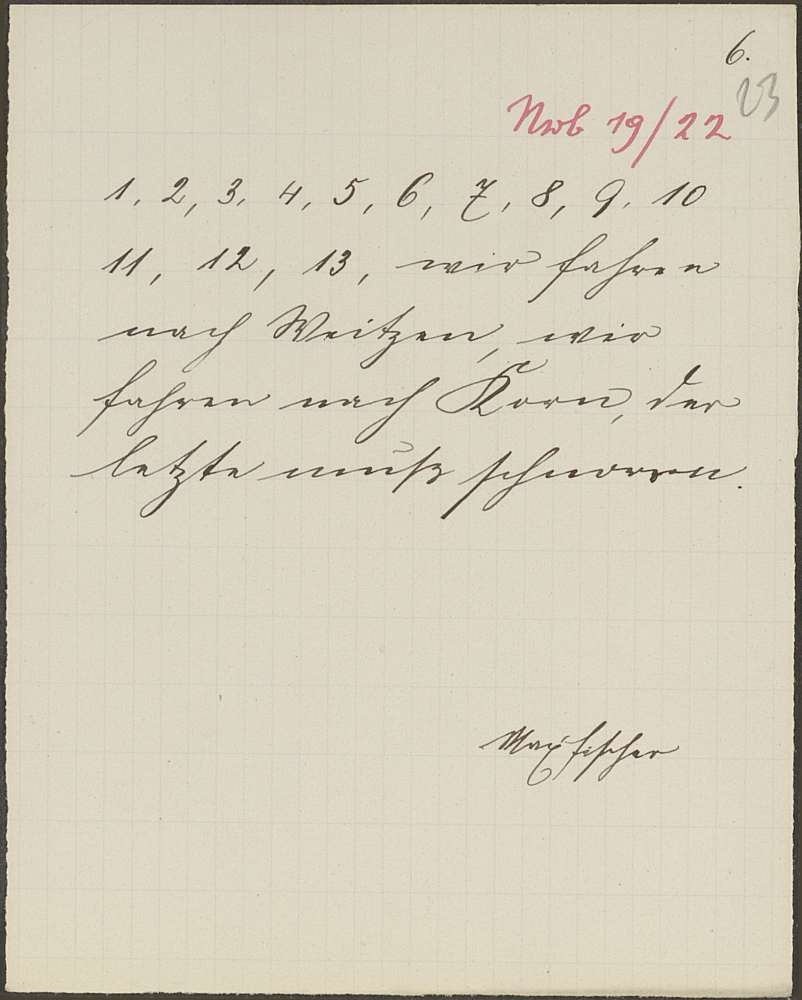 6.
23
Nwb 19/22
1, 2, 3, 4, 5, 6, 7, 8, 9, 10
11, 12, 13, wir fahren
nach Weitzen, wir
fahren nach Korn, der
letzte muß schnorrn.
Max Fischer